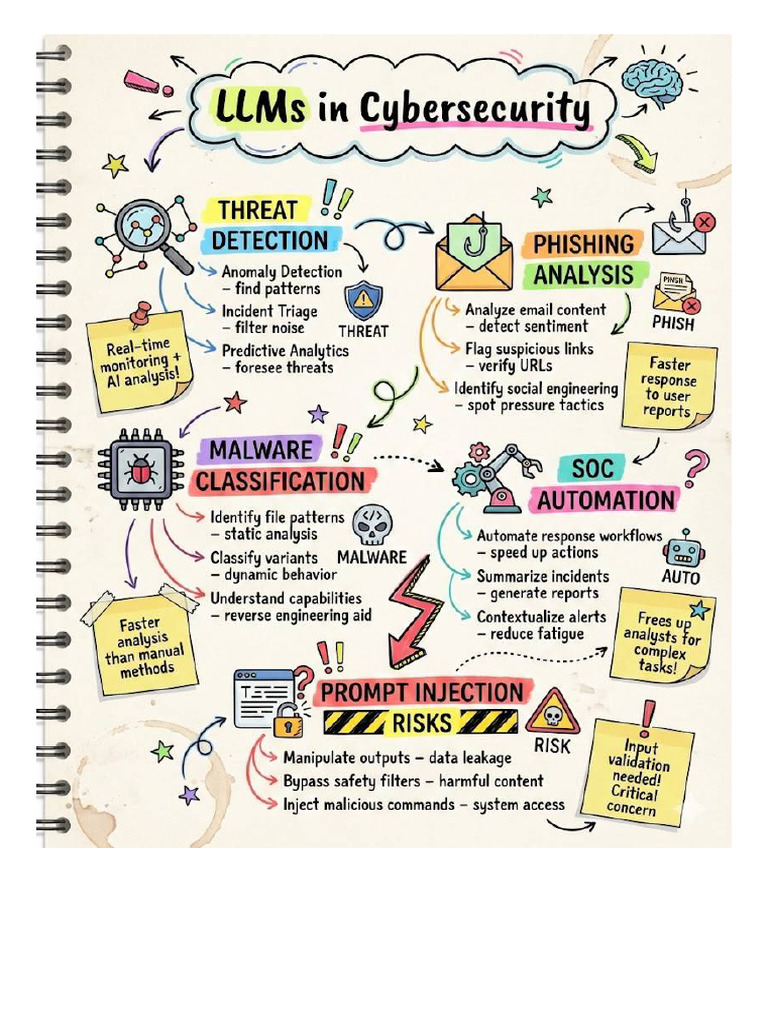 LLMs in Cybersecurity
THREAT
DETECTION
Anomaly Detection
– find patterns
Incident Triage
– filter noise
Predictive Analytics
– foresee threats
THREAT
Real-time
monitoring +
AI analysis!
PHISHING
ANALYSIS
Analyze email content
– detect sentiment
Flag suspicious links
– verify URLs
Identify social engineering
– spot pressure tactics
PHISH
Faster
response
to user
reports
MALWARE
CLASSIFICATION
Identify file patterns
– static analysis
Classify variants
– dynamic behavior
Understand capabilities
– reverse engineering aid
</>
MALWARE
Faster
analysis
than manual
methods
SOC
AUTOMATION
Automate response workflows
– speed up actions
Summarize incidents
– generate reports
Contextualize alerts
– reduce fatigue
AUTO
Frees up
analysts for
complex
tasks!
PROMPT INJECTION
RISKS
Manipulate outputs – data leakage
Bypass safety filters – harmful content
Inject malicious commands – system access
RISK
Input
validation
needed!
Critical
concern